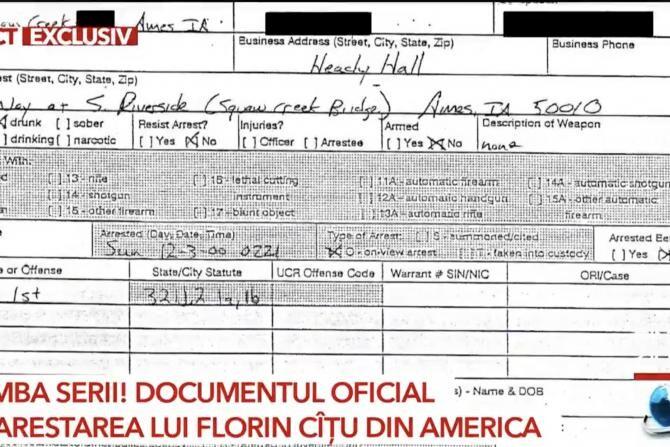 CT EXCLUSIV
Creek Ames IA
Business Address (Street, City, State, Zip)
Business Phone
Heady Hall
est (Street, City, State, Zip)
Way at S. Riverside (Squaw Creek Bridge) Ames, IA 50010
drunk [ ] sober
Resist Arrest?
Injuries?
Armed
Description of Weapon
drinking [ ] narcotic
[ ] Yes [X] No
[ ] Officer [ ] Arrestee
[ ] Yes [X] No
none
With:
[ ] 13 - rifle
[ ] 16 - lethal cutting
[ ] 11A - automatic firearm
[ ] 14A - automatic shotgun
[ ] 14 - shotgun
instrument
[ ] 12A - automatic handgun
[ ] 15A - other automatic
[ ] 15 - other firearm
[ ] 17 - blunt object
[ ] 13A - automatic rifle
firearm
Arrested (Day, Date, Time)
Type of Arrest: [ ] S - summoned/cited
Arrested Be
Sun 12-3-00 0221
[X] O - on-view arrest [ ] T - taken into custody
[ ] Yes
e or Offense
State/City Statute
UCR Offense Code
Warrant # SIN/NIC
ORI/Case
1st
321J.2
s) - Name & DOB
MBA SERII! DOCUMENTUL OFICIAL
ARESTAREA LUI FLORIN CÎȚU DIN AMERICA